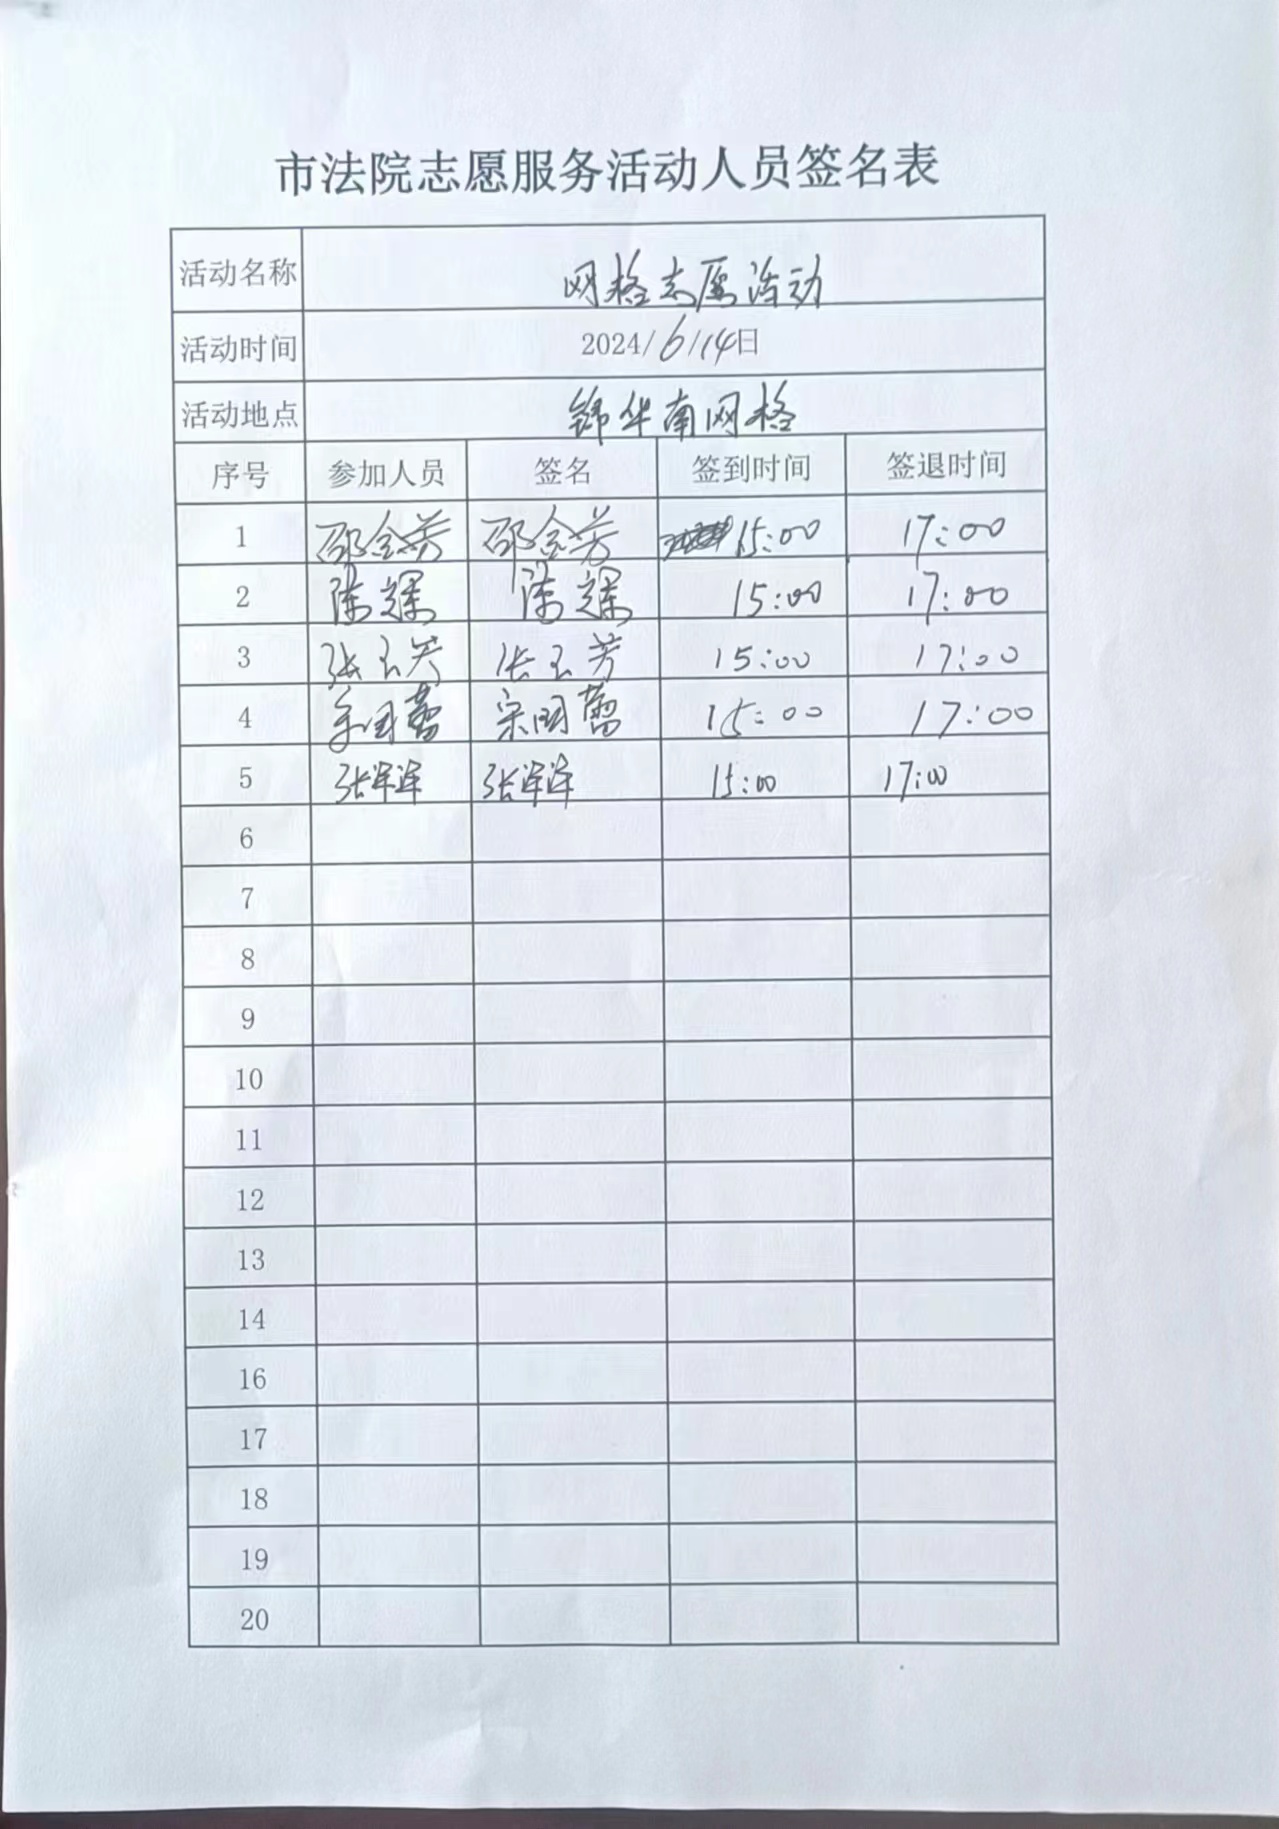 市法院志愿服务活动人员签名表
活动名称 网格志愿活动
活动时间 2024/6/14日
活动地点 锦华南网格
序号 参加人员 签名 签到时间 签退时间
1 邵金芳 邵金芳 15:00 17:00
2 陈辉 陈辉 15:00 17:00
3 张玉芳 张玉芳 15:00 17:00
4 15:00 17:00
5 15:00 17:00
6
7
8
9
10
11
12
13
14
16
17
18
19
20